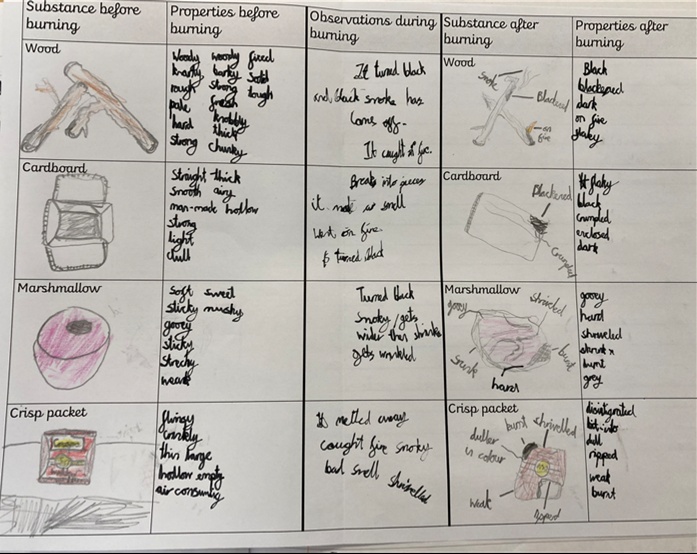 Substance before
burning
Properties before
burning
Observations during
burning
Substance after
burning
Properties after
burning
Wood
Woody woody fixed
knarly, barky Solid
rough strong tough
pale fresh
hard knobbly
strong thick
chunky
It turned black
and black smoke has
Come off.
It caught of fire.
Wood
Smoke
Blackened
on
fire
Black
blackened
dark
on fire
flakey
Cardboard
Straight thick
Smooth airy
man-made hollow
strong
light
dull
Breaks into pieces
it made a smell
Went on fire
& turned black
Cardboard
Blackened
Crumpled
flaky
black
Crumpled
enclosed
dark
Marshmallow
Soft sweet
sticky mushy
gooey
sticky
Strechy
weak
Turned black
Smoky/gets
wider then shrinks
gets wrinkled
Marshmallow
gooey
shriveled
burnt
hard
gooey
hard
shriveled
shrunk
burnt
grey
Crisp packet
flimsy
crinkly
thin large
hollow empty
air consuming
It melted away
cought fire smoky
bad smell shrivelled
Crisp packet
burnt shrivelled
duller
in colour
weak
ripped
disintigrated
dull
ripped
weak
burnt